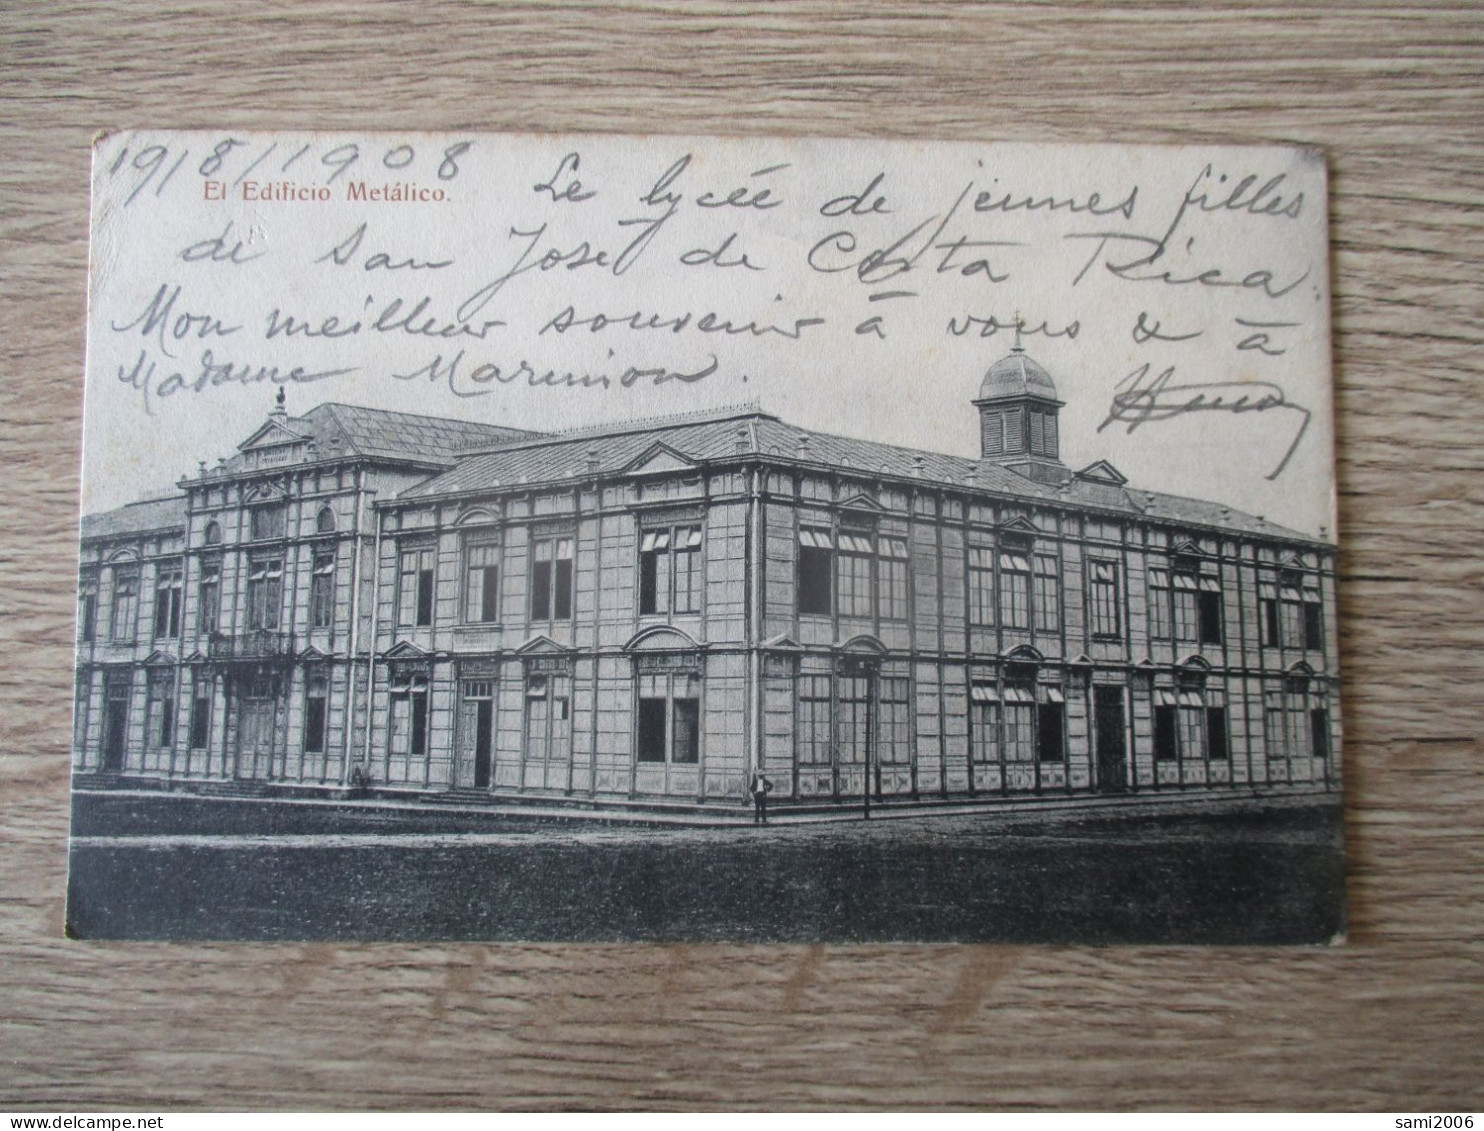 19/8/1908
El Edificio Metálico.
Le lycée de jeunes filles
de San José de Costa Rica.
Mon meilleur souvenir à vous & à
Madame Marinion.
sami2006